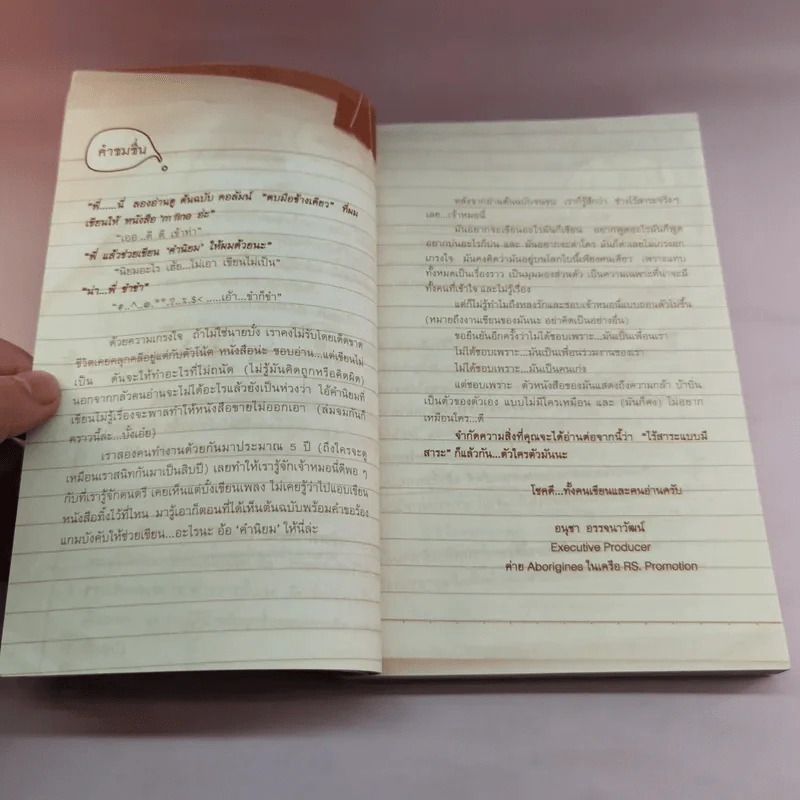 คำชมชื่น
"พี่.....นี่ ลองอ่านดู ต้นฉบับ คอลัมน์ "ตบมือข้างเดียว" ที่ผม
เขียนให้ หนังสือ 'm fine อ่ะ"
"เออ...ดี ดี เข้าท่า"
"พี่ แล้วช่วยเขียน 'คำนิยม' ให้ผมด้วยนะ"
"นิยมอะไร เฮ้ย...ไม่เอา เขียนไม่เป็น"
"น่า...พี่ ขำขำ"
.....เอ้า...ขำก็ขำ"
ด้วยความเกรงใจ ถ้าไม่ใช่นายบั๋ง เราคงไม่รับโดยเด็ดขาด
ชีวิตเคยคลุกคลีอยู่แต่กับตัวโน้ต หนังสือน่ะ ชอบอ่าน...แต่เขียนไม่
เป็น ดันจะให้ทำอะไรที่ไม่ถนัด (ไม่รู้มันคิดถูกหรือคิดผิด)
นอกจากกลัวคนอ่านจะไม่ได้อะไรแล้วยังเป็นห่วงว่า ไอ้คำนิยมที่
เขียนไม่รู้เรื่องจะพาลทำให้หนังสือขายไม่ออกเอา (ล่มจมกันก็
คราวนี้ล่ะ...บั๋งเอ๋ย)
เราสองคนทำงานด้วยกันมาประมาณ 5 ปี (ถึงใครจะดู
เหมือนเราสนิทกันมาเป็นสิบปี) เลยทำให้เรารู้จักเจ้าหมอนี่ดีพอ ๆ
กับที่เรารู้จักดนตรี เคยเห็นแต่บั๋งเขียนเพลง ไม่เคยรู้ว่าไปแอบเขียน
หนังสือทิ้งไว้ที่ไหน มารู้เอาก็ตอนที่ได้เห็นต้นฉบับพร้อมคำขอร้อง
แกมบังคับให้ช่วยเขียน...อะไรนะ อ้อ 'คำนิยม' ให้นี่ล่ะ
หลังจากอ่านต้นฉบับจนจบ เราก็รู้สึกว่า ช่างไร้สาระจริงๆ
เลย...เจ้าหมอนี่
มันอยากจะเขียนอะไรมันก็เขียน อยากพูดอะไรมันก็พูด
อยากบ่นอะไรก็บ่น และ มันอยากจะด่าใคร มันก็ด่าเลยไม่เกรงอก
เกรงใจ มันคงคิดว่ามันอยู่บนโลกใบนี้เพียงคนเดียว เพราะแทบ
ทั้งหมดเป็นเรื่องราว เป็นมุมมองส่วนตัว เป็นความเฉพาะที่น่าจะมี
ทั้งคนที่เข้าใจ และไม่รู้เรื่อง
แต่ก็ไม่รู้ทำไมถึงหลงรักและชอบเจ้าหมอนี่แบบถอนตัวไม่ขึ้น
(หมายถึงงานเขียนของมันนะ อย่าคิดเป็นอย่างอื่น)
ขอยืนยันอีกครั้งว่าไม่ได้ชอบเพราะ...มันเป็นเพื่อนเรา
ไม่ได้ชอบเพราะ...มันเป็นเพื่อนร่วมงานของเรา
ไม่ได้ชอบเพราะ...มันเป็นคนเก่ง
แต่ชอบเพราะ ตัวหนังสือของมันแสดงถึงความกล้า บ้าบิ่น
เป็นตัวของตัวเอง แบบไม่มีใครเหมือน และ (มันก็คง) ไม่อยาก
เหมือนใคร...ดี
จำกัดความสิ่งที่คุณจะได้อ่านต่อจากนี้ว่า "ไร้สาระแบบมี
สาระ" ก็แล้วกัน...ตัวใครตัวมันนะ
โชคดี...ทั้งคนเขียนและคนอ่านครับ
อนุชา อรรจนาวัฒน์
Executive Producer
ค่าย Aborigines ในเครือ RS. Promotion